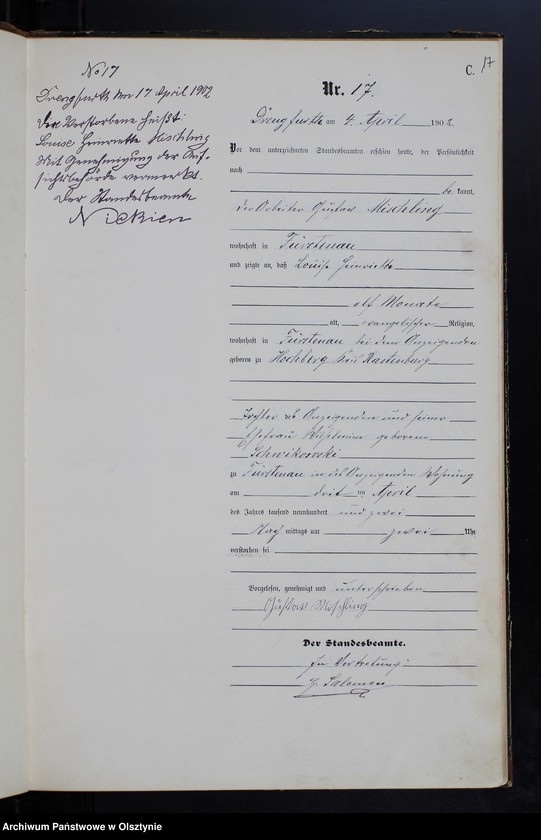 No 17
Drengfurth den 17 April 1902
Die Verstorbene heißt:
Louise Henriette Mischling
Mit Genehmigung der Auf-
sichtsbehörde vermerkt.
Der Standesbeamte
C. 17
Nr. 17.
Drengfurth am 4. April 1902
Vor dem unterzeichneten Standesbeamten erschien heute, der Persönlichkeit
nach
be kannt,
der Arbeiter Gustav Mischling
wohnhaft in Fürstenau
und zeigte an, daß Louise Henriette
elf Monate
alt, evangelischer Religion,
wohnhaft in Fürstenau bei dem Anzeigenden
geboren zu Hochberg Kreis Rastenburg
Tochter des Anzeigenden und seiner
Ehefrau Wilhelmine geborenen
Schwikowski
zu Fürstenau in des Anzeigenden Wohnung
am drit ten April
des Jahres tausend neunhundert und zwei
Nach mittags um zwei Uhr
verstorben sei
Vorgelesen, genehmigt und unterschrieben
Gustav Mischling
Der Standesbeamte.
In Vertretung:
G. Salomon
Archiwum Państwowe w Olsztynie